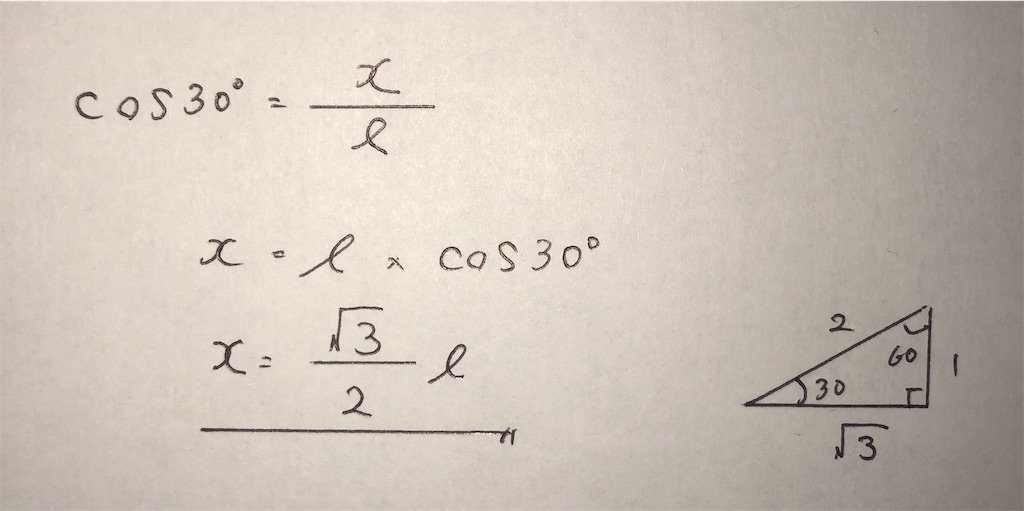 cos30° = x/ℓ
x = ℓ × cos30°
x = √3/2 ℓ
2
60
1
30
√3